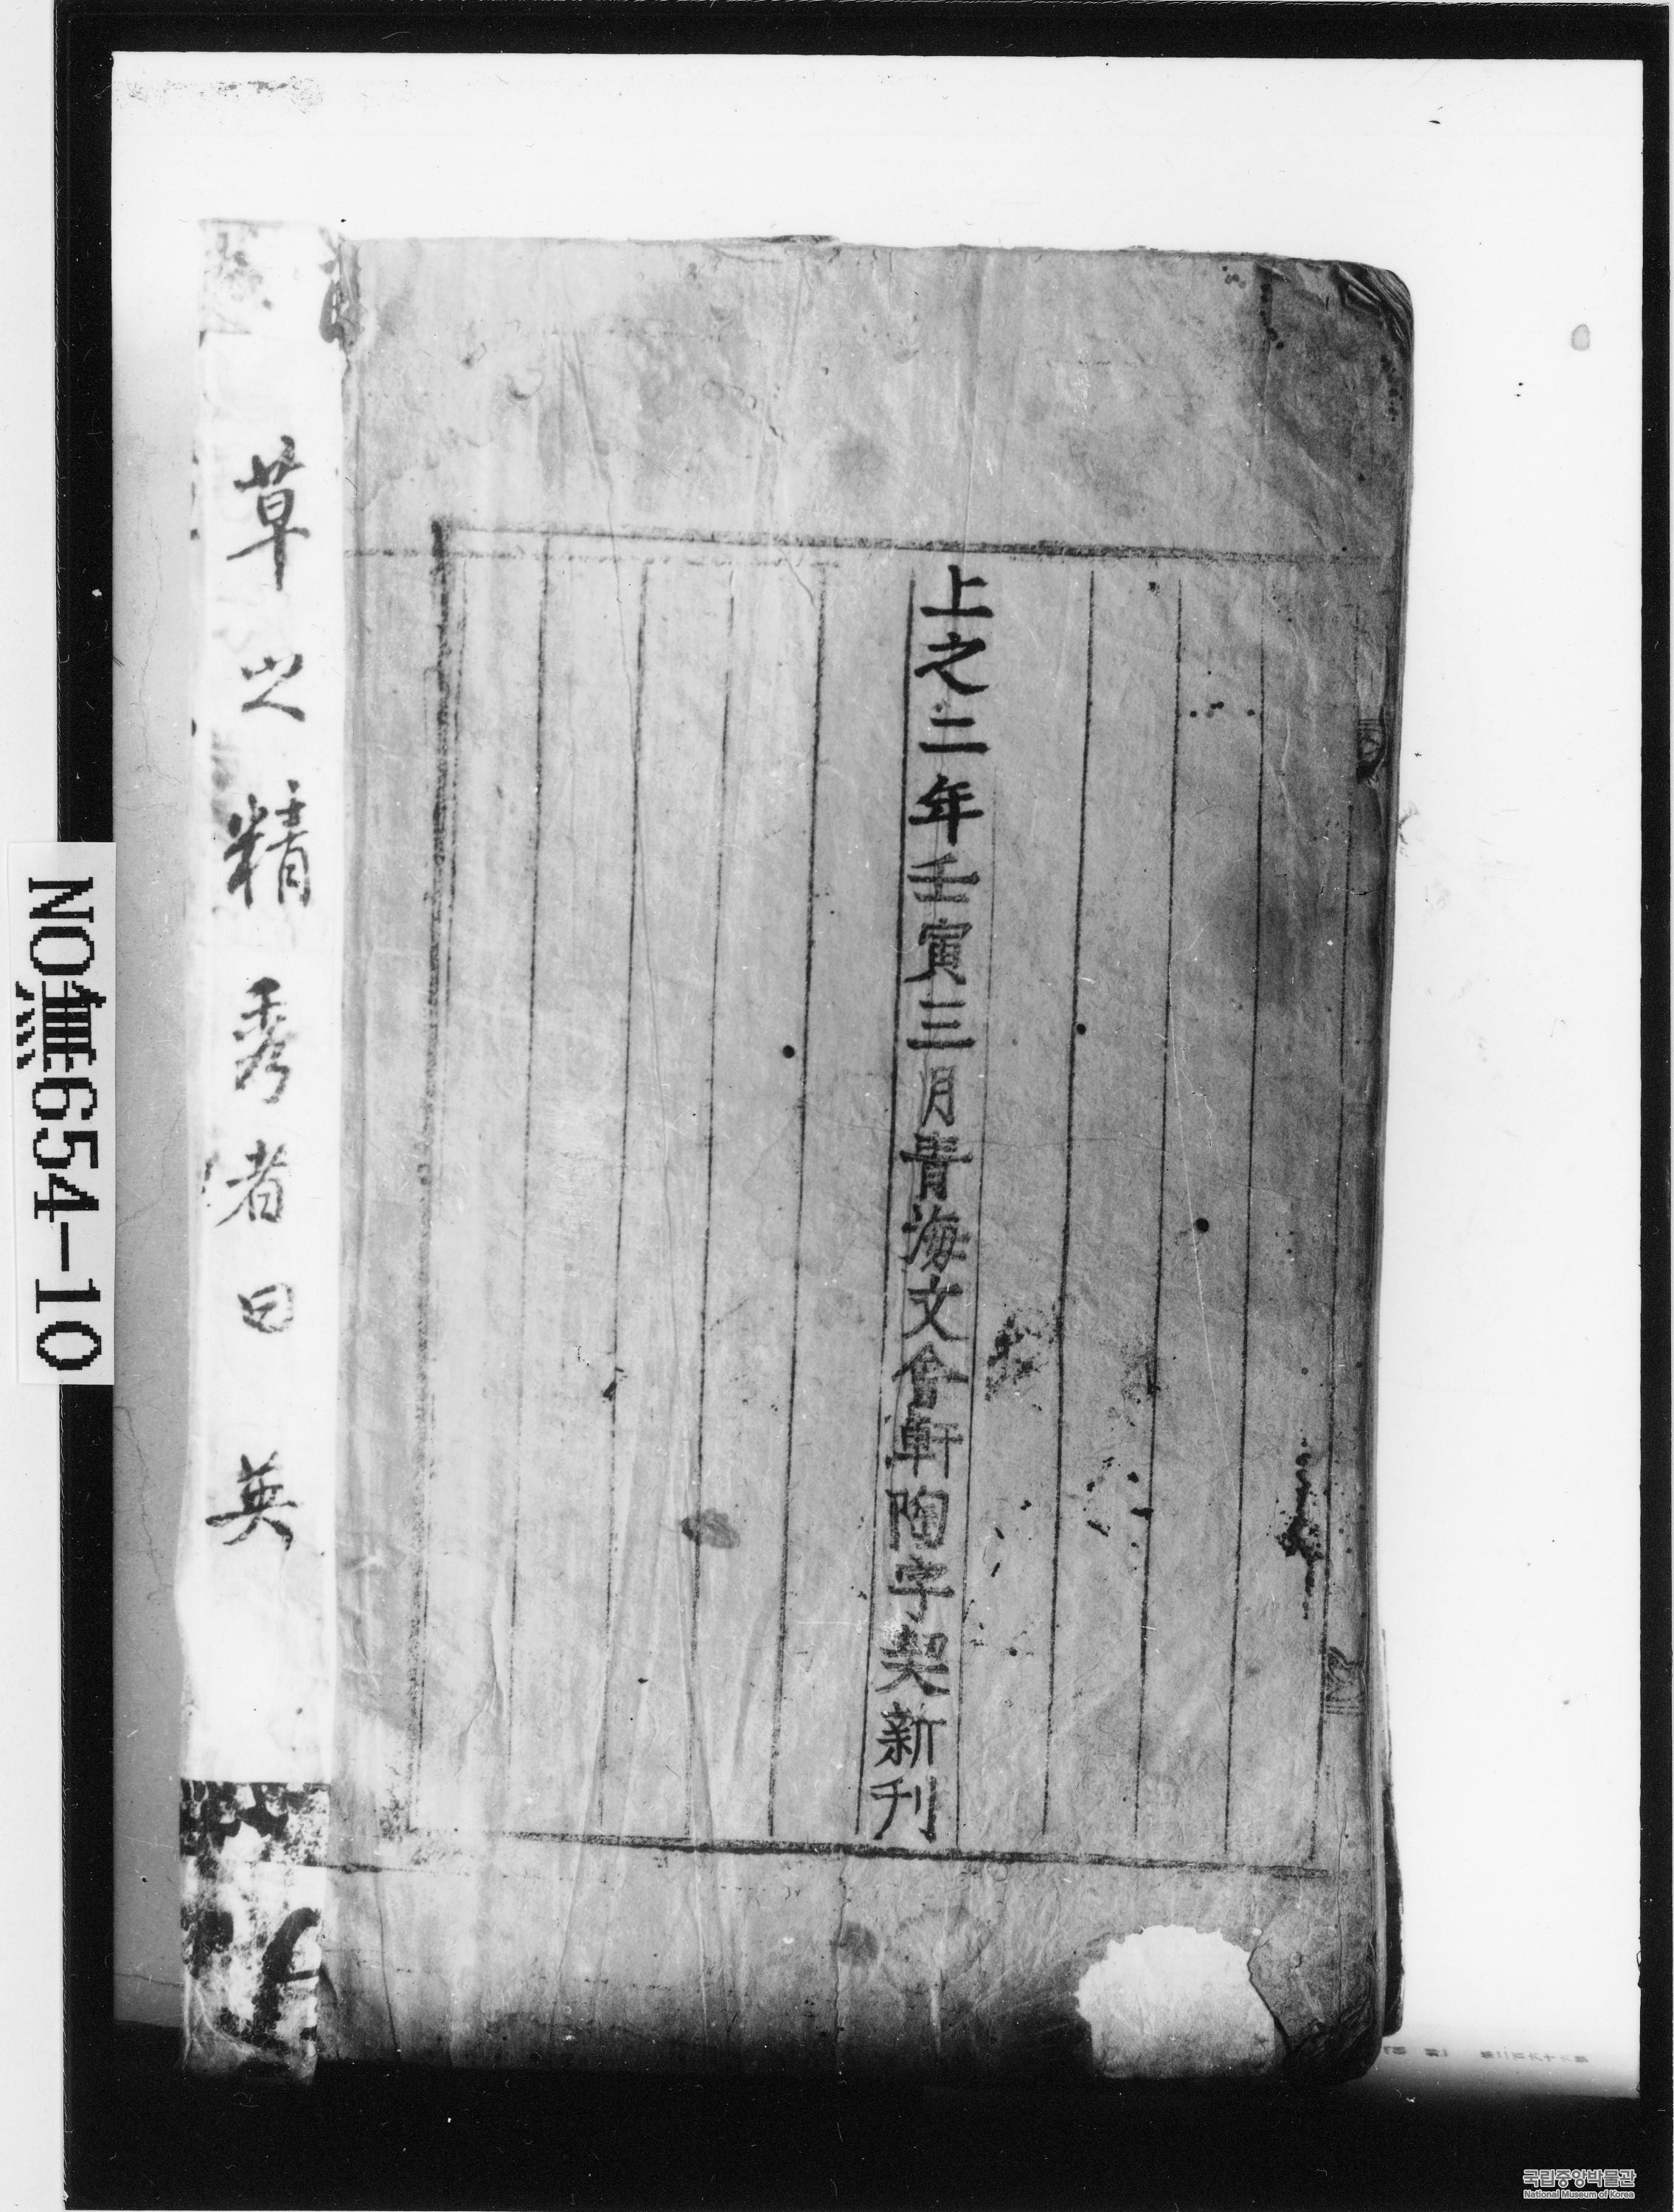 上之二年壬寅三月青海文會軒陶字契新刊
草之精秀者曰英
NO無654-10
국립중앙박물관
National Museum of Korea